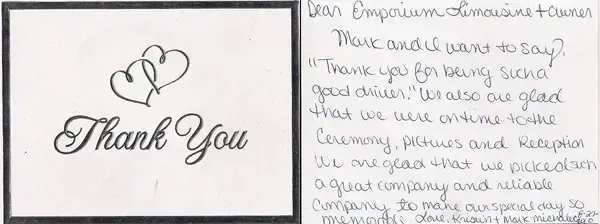 Thank You
Dear Emporium Limousine + owner
Mark and I want to say,
"Thank you for being such a
good driver." We also are glad
that we were on time to the
Ceremony, pictures and Reception
We are glad that we picked such
a great company and reliable
Company to make our special day so
memorable Love, Kristin + Mark